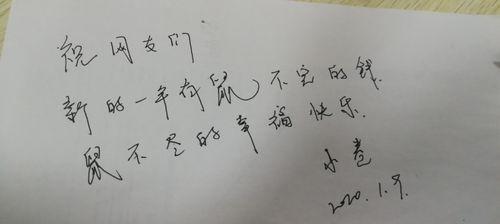 祝网友们
新的一年有鼠不完的钱.
鼠不尽的幸福快乐.
小卷
2020.1.9.